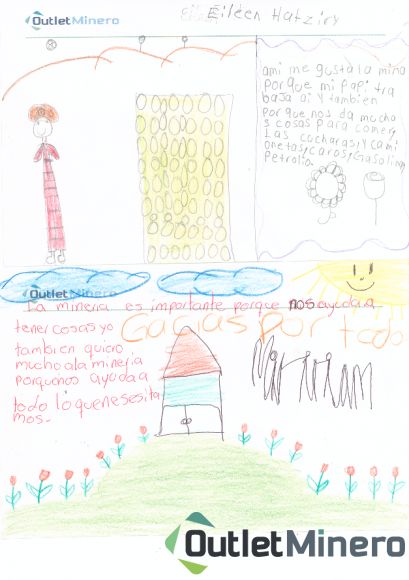 OutletMinero
Eileen Hatziry
ami me gusta la mina
porque mi papi tra
baja ai y tambien
porque nos da mucha
s cosas para comer
Las cocharas, y cami
onetas, caros, Gasolina
Petrolio.
OutletMinero
La mineria es importante porque nos ayuda a
tener cosas yo
tambien quiero
mucho a la mineria
porque nos ayuda a
todo lo que nesesita
mos.
Gacias por todo
Miriam
OutletMinero